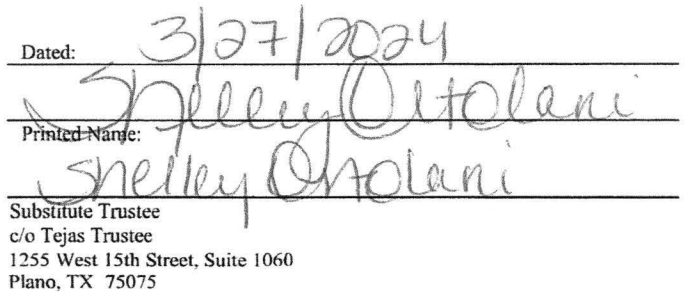 Dated: 3/27/2024
Shelley Ortolani
Printed Name:
Shelley Ortolani
Substitute Trustee
c/o Tejas Trustee
1255 West 15th Street, Suite 1060
Plano, TX 75075